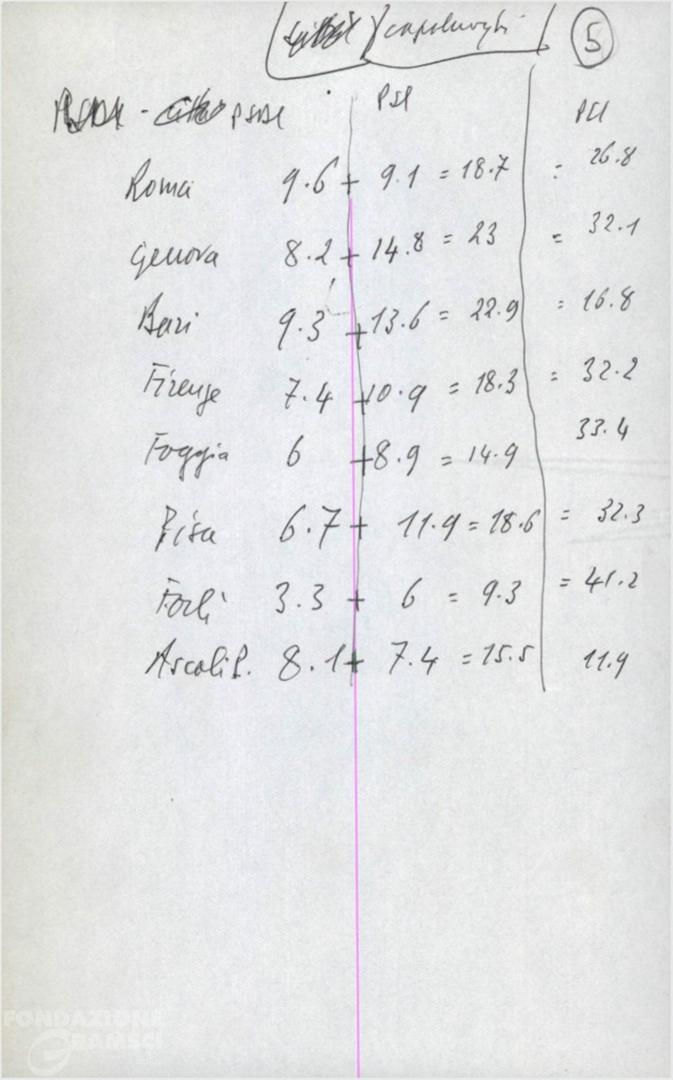 capoluoghi 5
PSDI PSI PCI
Roma 9.6 + 9.1 = 18.7 = 26.8
Genova 8.2 + 14.8 = 23 = 32.1
Bari 9.3 + 13.6 = 22.9 = 16.8
Firenze 7.4 + 10.9 = 18.3 = 32.2
Foggia 6 + 8.9 = 14.9 33.4
Pisa 6.7 + 11.9 = 18.6 = 32.3
Forlì 3.3 + 6 = 9.3 = 41.2
Ascoli P. 8.1 + 7.4 = 15.5 11.9
FONDAZIONE
GRAMSCI